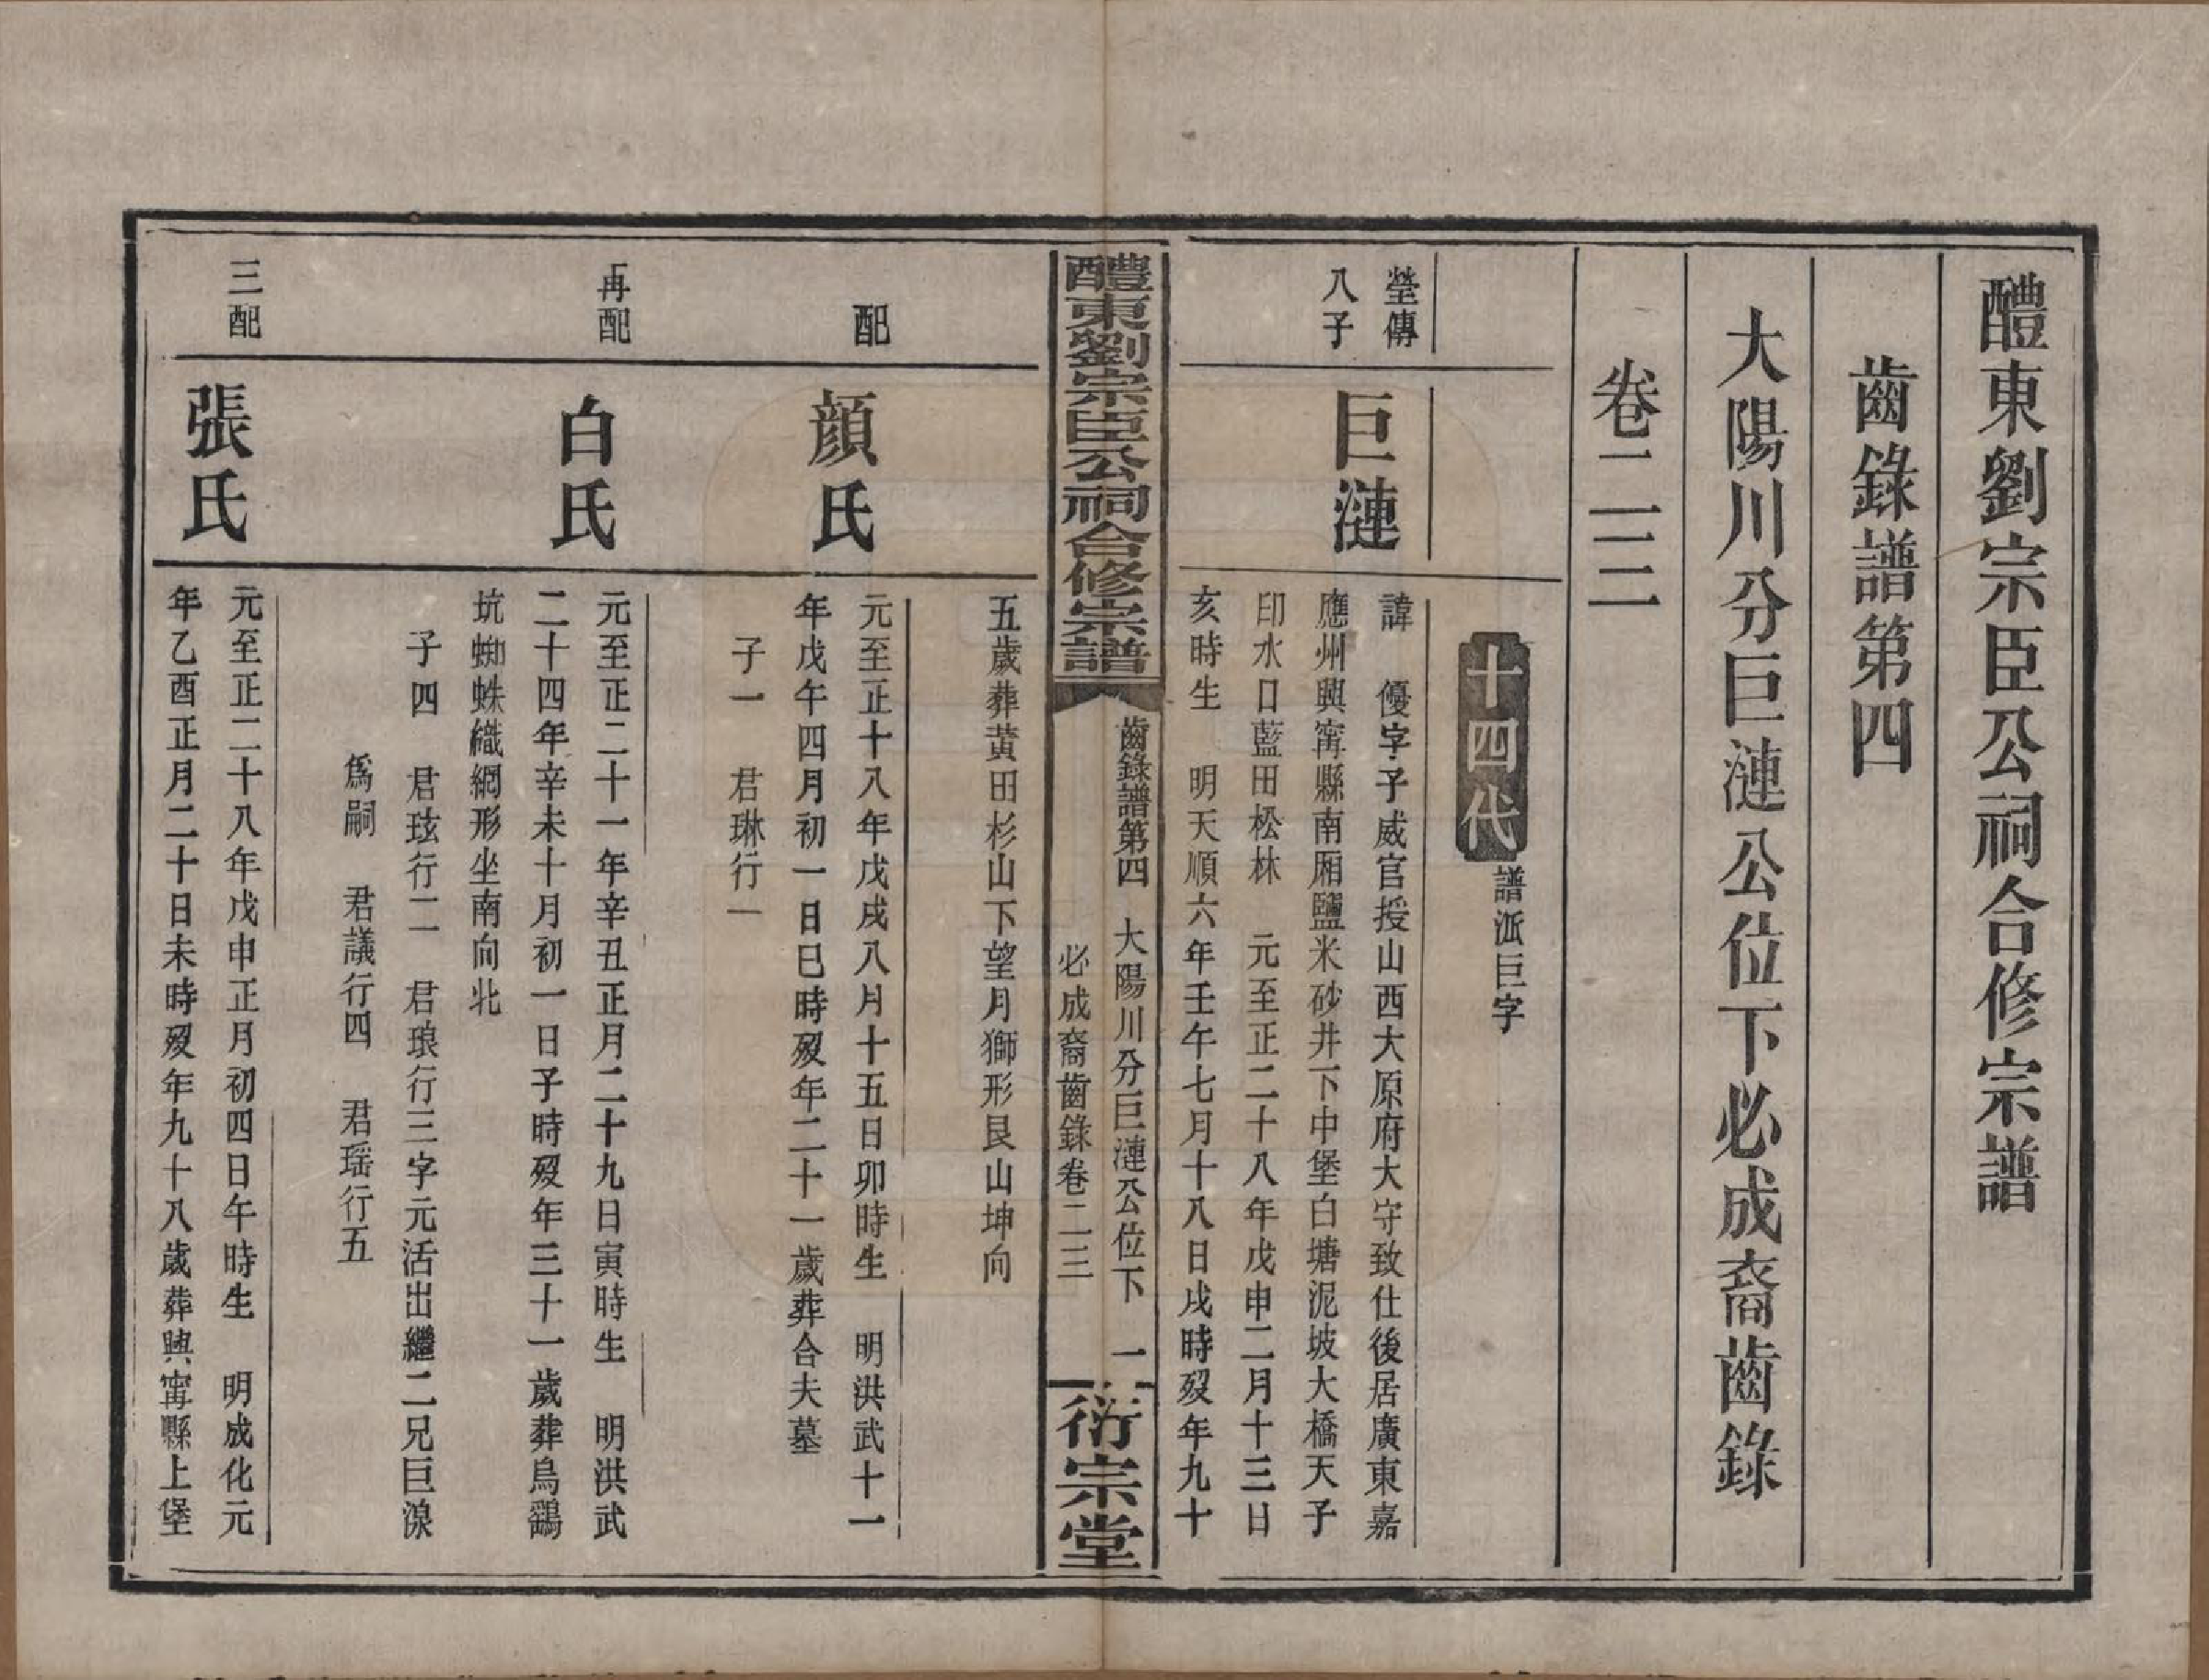 醴東劉宗臣公祠合修宗譜
齒錄譜第四
大陽川分巨漣公位下必成裔齒錄
卷二三
十四代
譜派巨字
瑩傳
八子
巨漣
諱　優字子威官授山西大原府大守致仕後居廣東嘉
應州興甯縣南廂鹽米砂井下中堡白塘泥坡大橋天子
印水口藍田松林　元至正二十八年戊申二月十三日
亥時生　明天順六年壬午七月十八日戌時歿年九十
醴東劉宗臣公祠合修宗譜
齒錄譜第四　大陽川分巨漣公位下　一
必成裔齒錄卷二三
衍宗堂
五歲葬黃田杉山下望月獅形艮山坤向
配
顏氏
元至正十八年戊戌八月十五日卯時生　明洪武十一
年戊午四月初一日巳時歿年二十一歲葬合夫墓
子一　君琳行一
再配
白氏
元至正二十一年辛丑正月二十九日寅時生　明洪武
二十四年辛未十月初一日子時歿年三十一歲葬烏鷂
坑蜘蛛織網形坐南向北
子四　君玹行二　君琅行三字元活出繼二兄巨湶
爲嗣　君議行四　君瑶行五
三配
張氏
元至正二十八年戊申正月初四日午時生　明成化元
年乙酉正月二十日未時歿年九十八歲葬興甯縣上堡